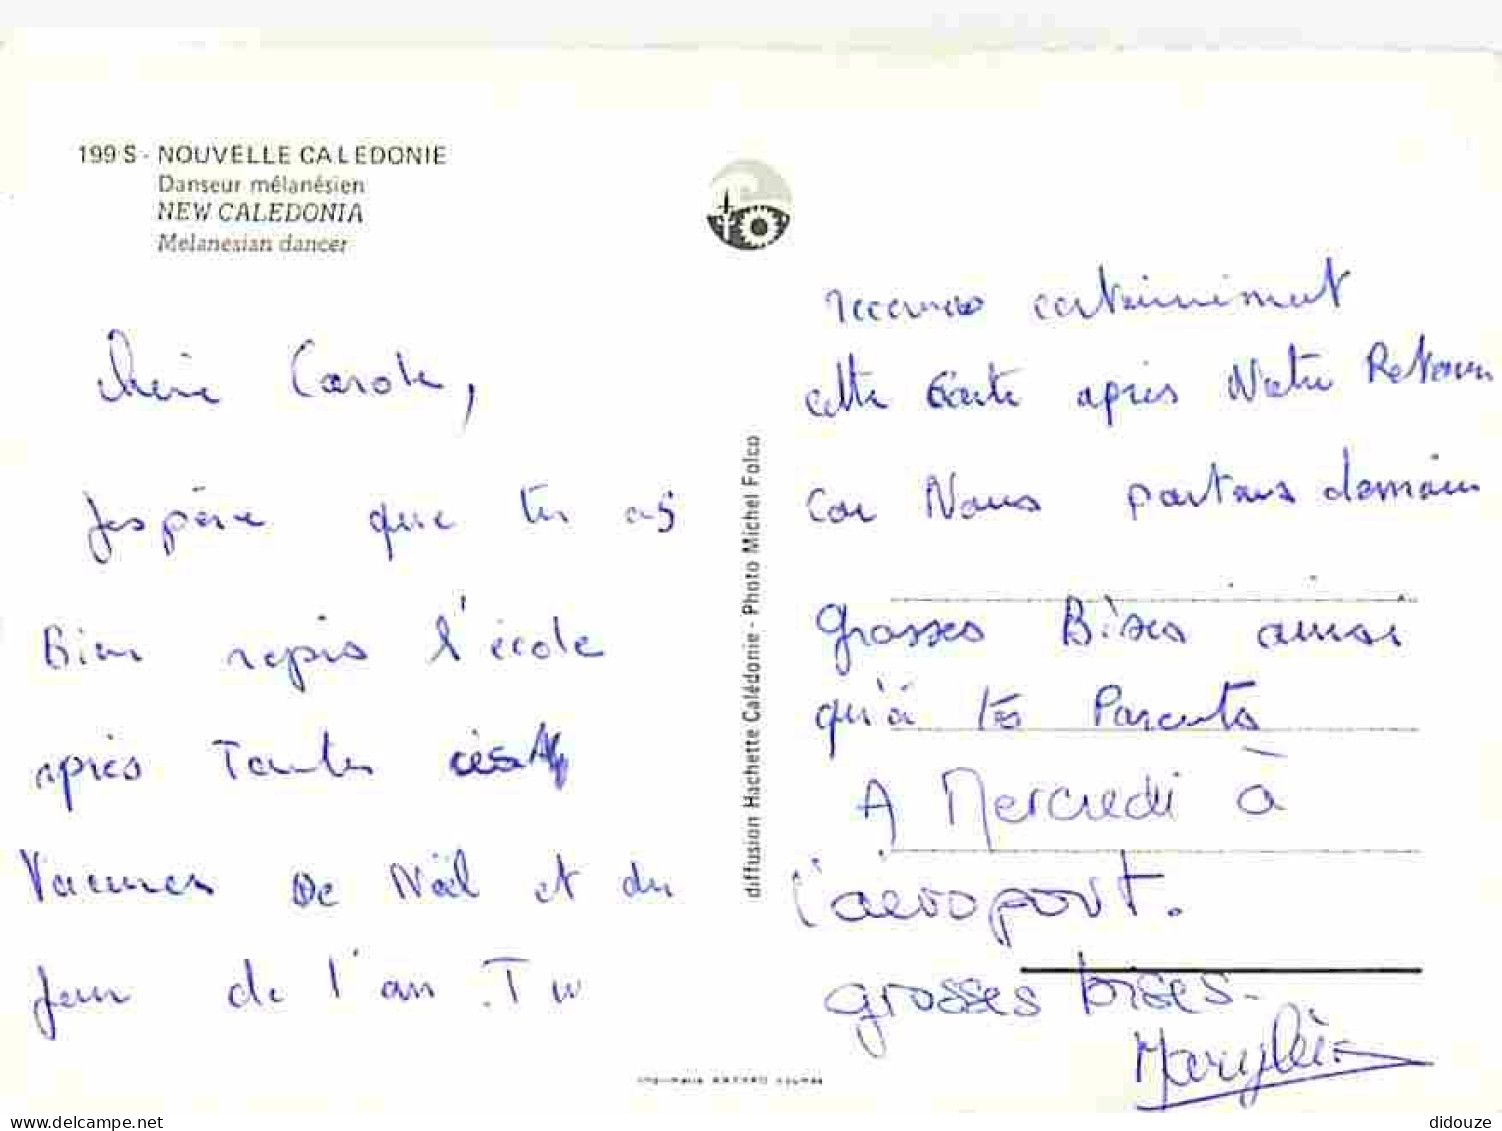 199 S - NOUVELLE CALEDONIE
Danseur mélanésien
NEW CALEDONIA
Melanesian dancer
Chère Carole,
J'espère que tu as
Bien repris l'école
après Toutes ces
Vacances De Nöel et du
Jour de l'an. Tu
recevras certainiment
cette Carte après Notre Retour
car Nous partons demain
grosses Bises ainsi
qu'à tes Parents
A Mercredi à
l'aeroport.
grosses bises.
Marylène
diffusion Hachette Calédonie - Photo Michel Folco
www.delcampe.net
didouze